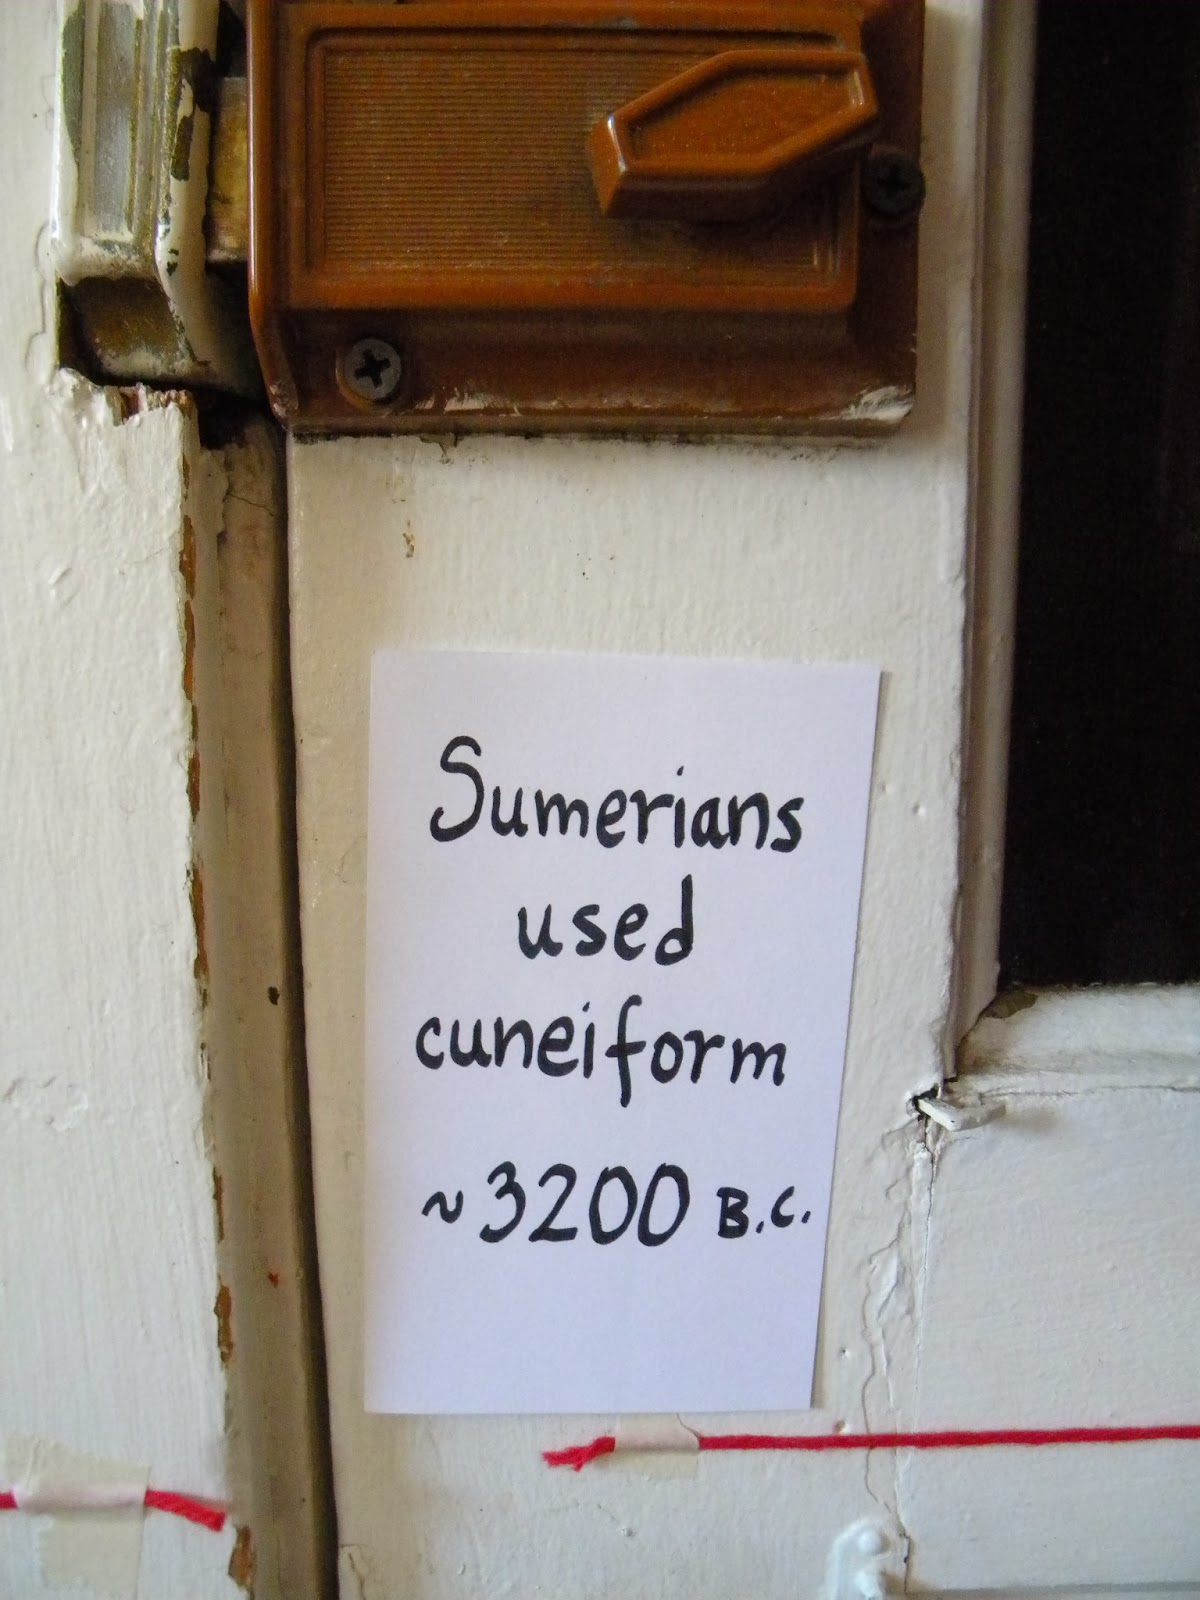 Sumerians
used
cuneiform
~3200 B.C.